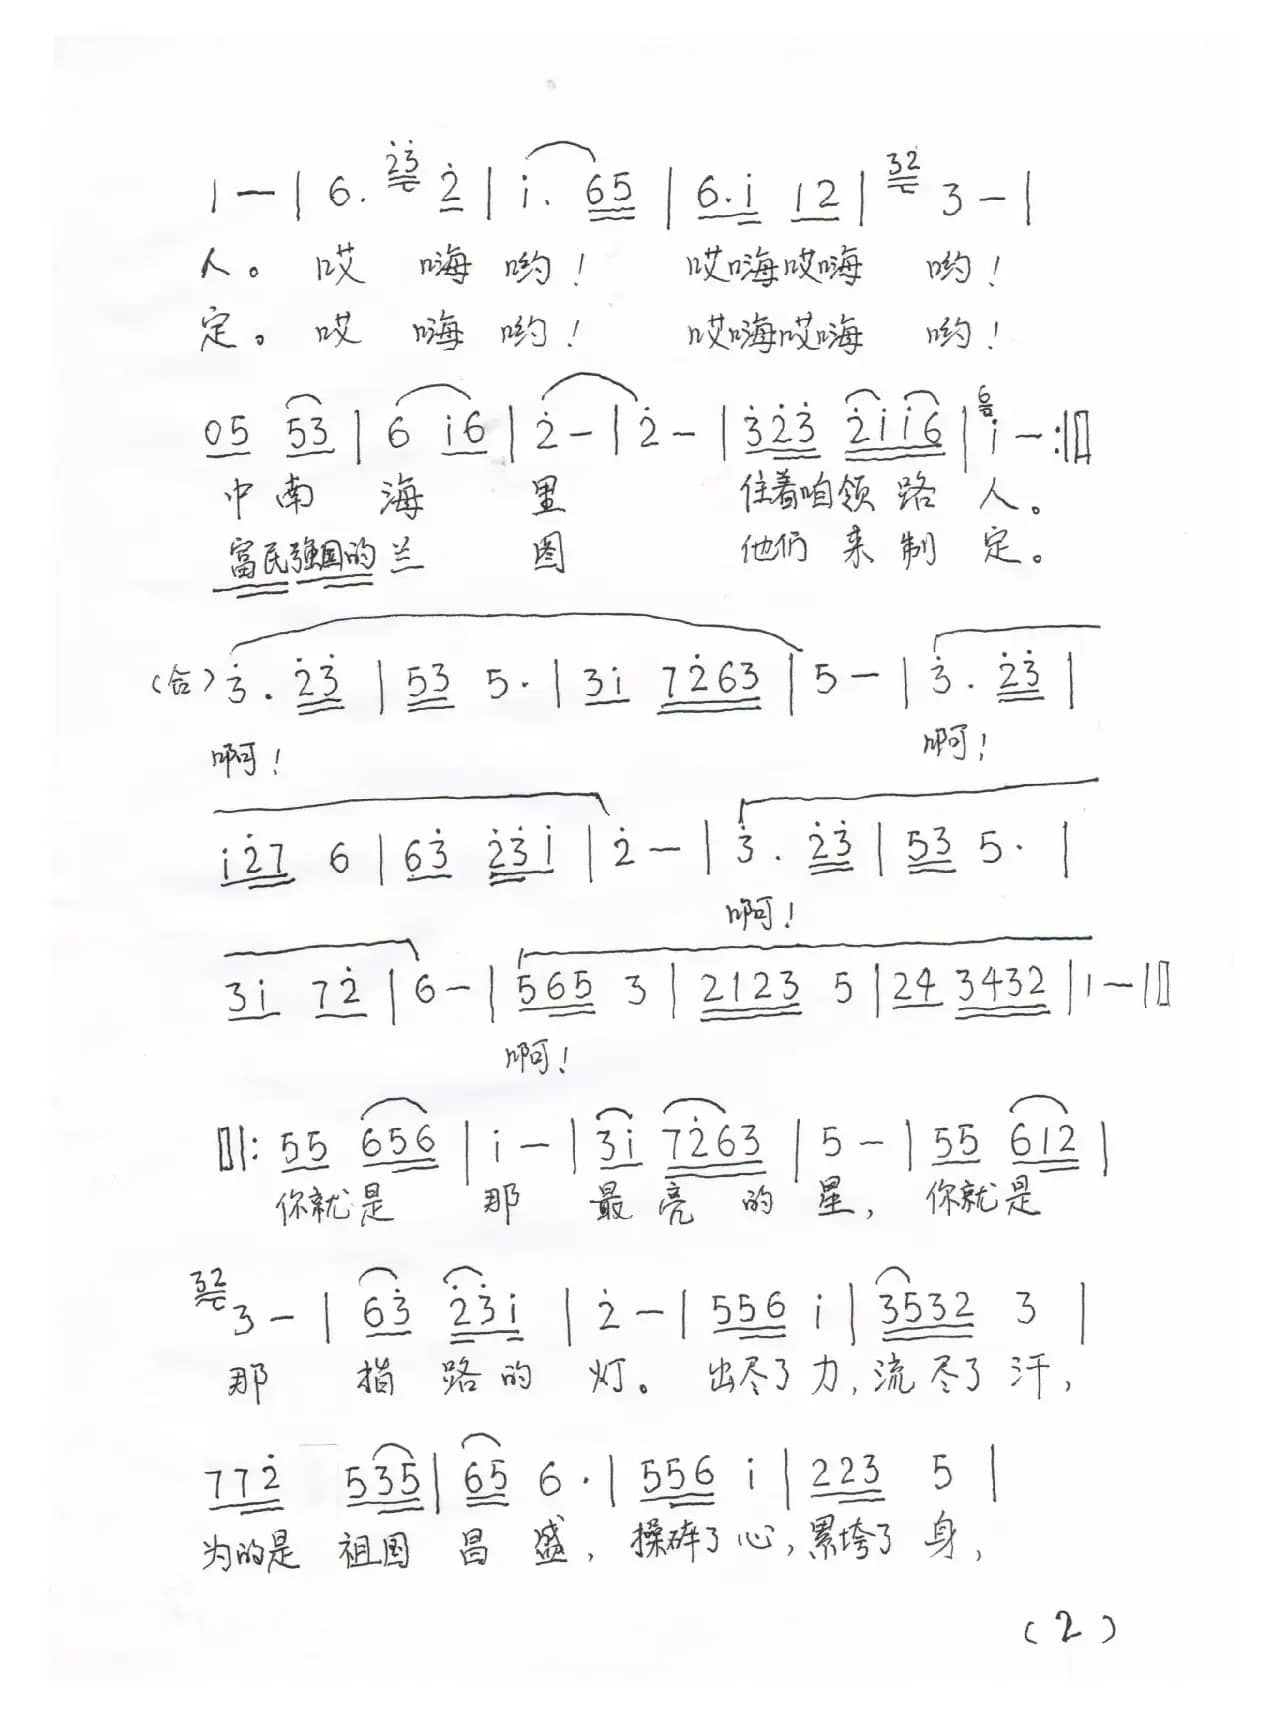 2̇3̇
1 — | 6. 2̇ | 1̇. 65 | 6.1̇ 12 | 32 3 — |
人。 哎 嗨 哟! 哎嗨哎嗨 哟!
定。 哎 嗨 哟! 哎嗨哎嗨 哟!
05 53 | 6 1̇6 | 2̇ — | 2̇ — | 3̇2̇3̇ 2̇1̇1̇6 | 6 1̇ — :||
中南 海 里 住着咱领 路 人。
富民强国的 兰 图 他们 来 制 定。
(合) 3̇. 2̇3̇ | 53 5. | 31̇ 72̇63 | 5 — | 3̇. 2̇3̇ |
啊! 啊!
1̇2̇7 6 | 63̇ 2̇3̇1̇ | 2̇ — | 3̇. 2̇3̇ | 53 5. |
啊!
31̇ 72̇ | 6 — | 565 3 | 2123 5 | 24 3432 | 1 — ||
啊!
||: 55 656 | 1̇ — | 31̇ 72̇63 | 5 — | 55 612 |
你就是 那 最 亮 的 星, 你就是
32 3 — | 63̇ 2̇3̇1̇ | 2̇ — | 556 1̇ | 3532 3 |
那 指 路的 灯。 出尽了 力, 流 尽了 汗,
772̇ 535 | 65 6. | 556 1̇ | 223 5 |
为的是 祖国 昌 盛, 操碎了 心, 累垮了 身,
(2)